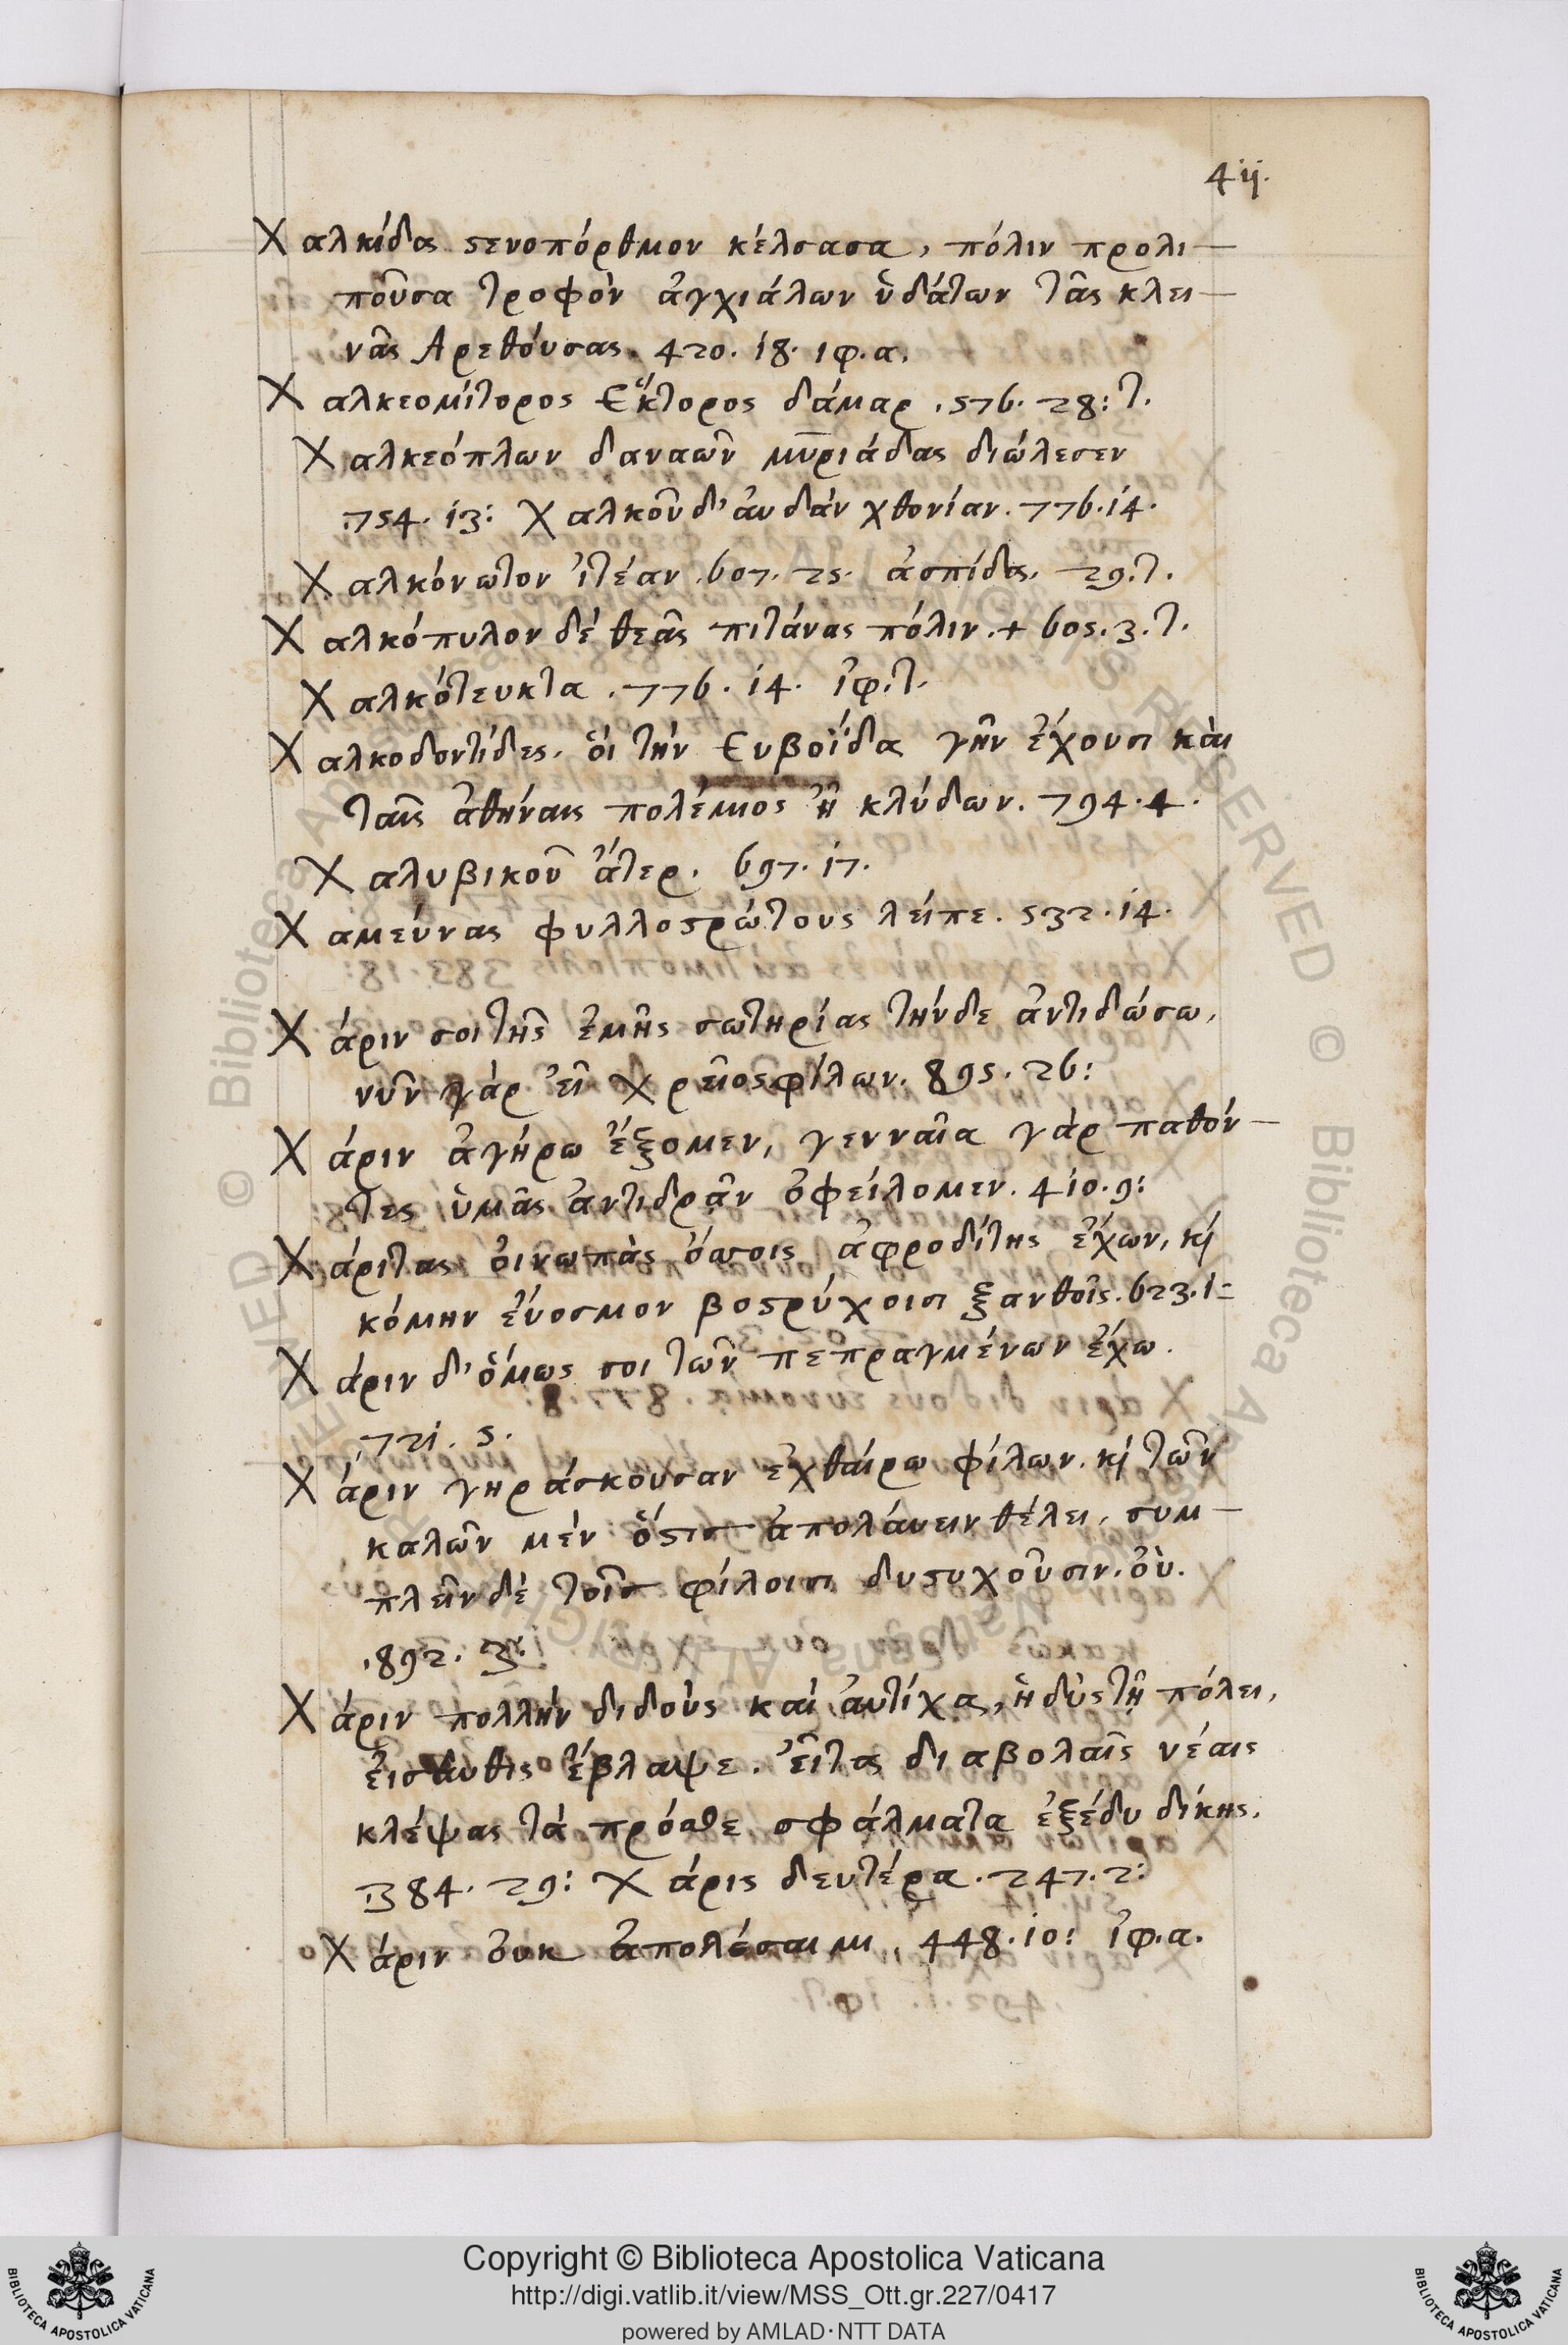 4ij.
Χαλκίδας ϛενοπόρθμον κέλσασα, πόλιν προλι—
ποῦσα τροφὸν ἀγχιάλων ὑδάτων τᾶς κλει—
νᾶς Αρεθόυσας. 420. 18. ιφ.α.
Χαλκεομίτορος Εἕκτορος δάμαρ. 576. 28: τ.
Χαλκεόπλων δαναῶν μυριάδας διώλεσεν
754. 13: Χαλκοῦ δ' ἀυδὰν χθονίαν. 776. 14.
Χαλκόνωτον ἰτέαν. 607. 25. ἀσπίδα. 29. τ.
Χαλκόπυλον δὲ θεᾶς πιτάνας πόλιν. + 605. 3. τ.
Χαλκότευκτα. 776. 14. ἰφ. τ.
Χαλκοδοντίδες. ὁι τὴν Ευβοΐδα γῆν ἔχουσι κὰι
ταῖς ἀθήναις πολέμιος ἦ κλύδων. 794. 4.
Χαλυβικοῦ ἄτερ. 697. 17.
Χαμεύνας φυλλοϛρώτους λείπε. 532. 14.
Χάριν σοι τῆς ἐμῆς σωτηρίας τήνδε ἀντιδώσω,
νῦν γὰρ εἶ Χρεῖος φίλων. 895. 26:
Χάριν ἀγήρω ἕξομεν, γενναῖα γὰρ παθόν—
τες ὑμᾶς ἀντιδρᾶν ὀφείλομεν. 410. 9:
Χάριτας ὀινωπὰς ὄσσοις ἀφροδίτης ἔχων, κὶ
κόμην ἔυοσμον βοϛρύχοισι ξανθοῖς. 623. 1:
Χάριν δ' ὅμως σοι τῶν πεπραγμένων ἔχω.
721. 5.
Χάριν γηράσκουσαν ἐχθάιρω φίλων. κὶ τῶν
καλῶν μὲν ὅϛις ἀπολάυειν θέλει, συμ—
πλεῖν δὲ τοῖς φίλοισι δυϛυχοῦσιν. ὀὺ.
892. 3.
Χάριν πολλὴν διδοὺς καὶ ἀυτίχα, ἡδὺς τῇ πόλει,
ἐισᾶυθις ἔβλαψε. εἶτα διαβολαῖς νέαις
κλέψας τὰ πρόσθε σφάλματα ἐξέδυ δίκης.
384. 29: Χάρις δευτέρα. 247. 2:
Χάριν ὀυκ ἀπολέσαιμι, 448. 10: ἰφ. α.
Copyright © Biblioteca Apostolica Vaticana
http://digi.vatlib.it/view/MSS_Ott.gr.227/0417
powered by AMLAD·NTT DATA